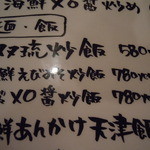 海鮮XO醤炒め
麺・飯
ヌヌ流炒飯 580
海鮮えびみそ炒飯 780
XO醤炒飯 780
鮮あんかけ天津飯